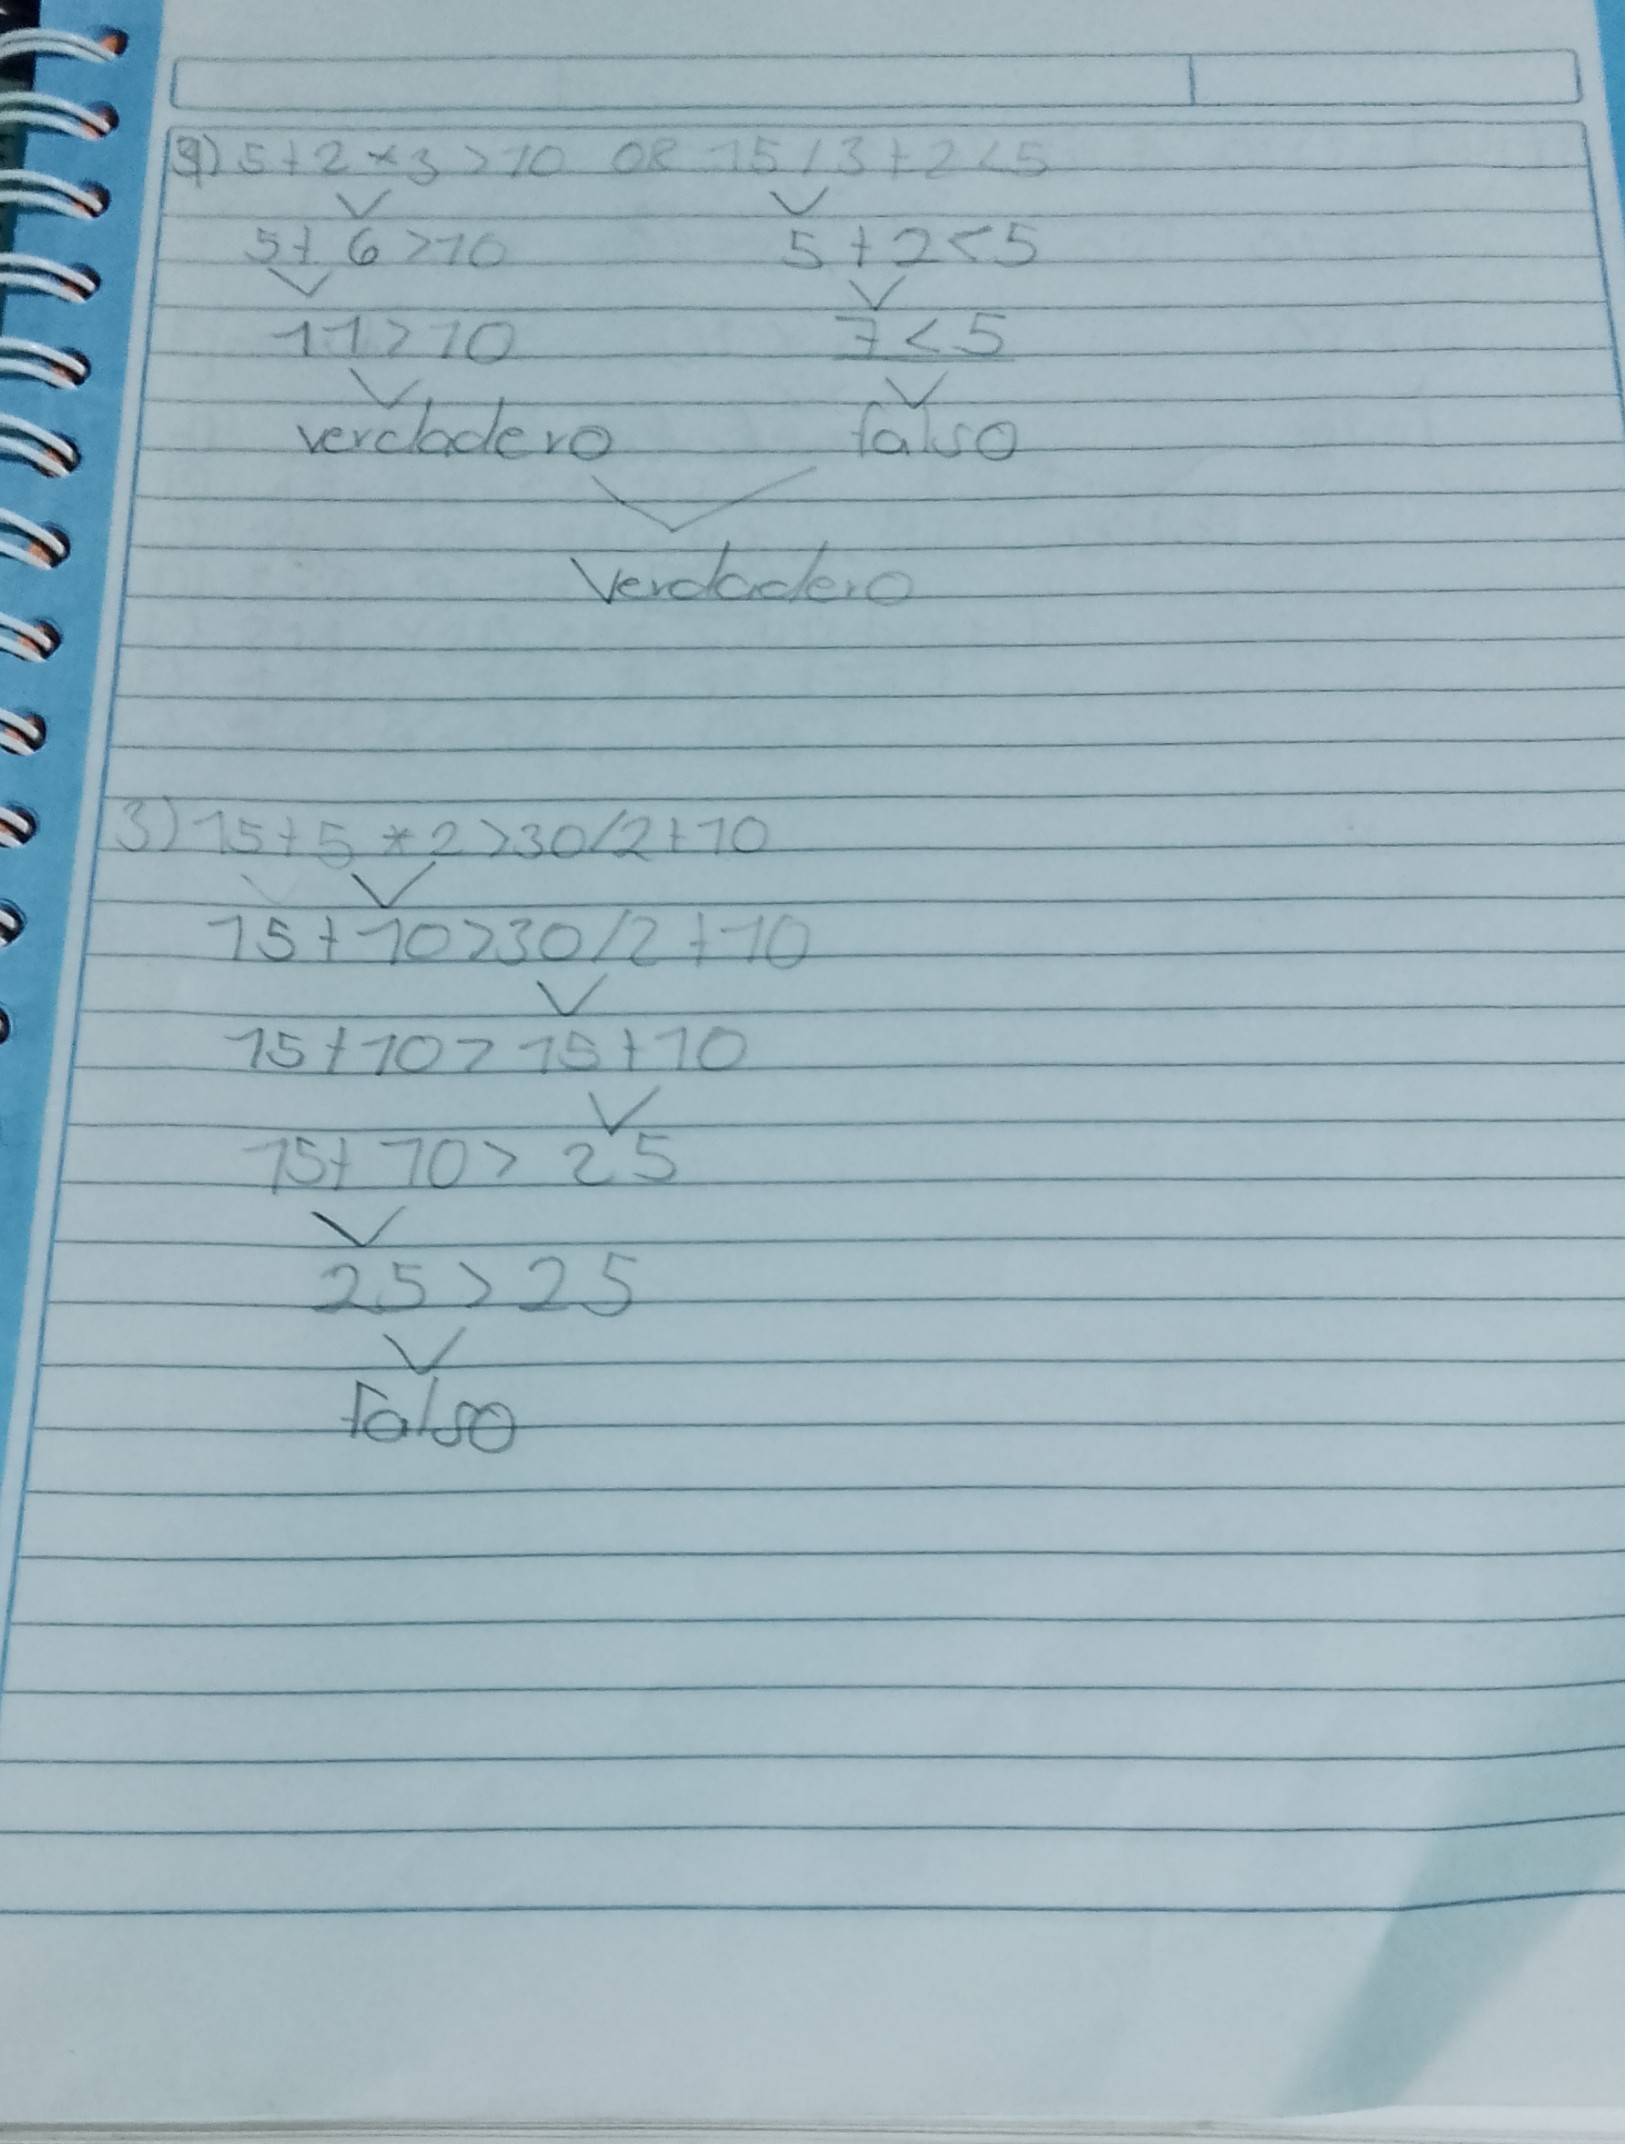 9) 5+2*3>10 OR 15/3+2<5
5+6>10 5+2<5
11>10 7<5
verdadero falso
Verdadero
3) 15+5*2>30/2+10
15+10>30/2+10
15+10>15+10
15+10>25
25>25
Falso